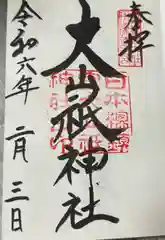 奉拝
日本総鎮守
大山祇神社
令和六年二月三日